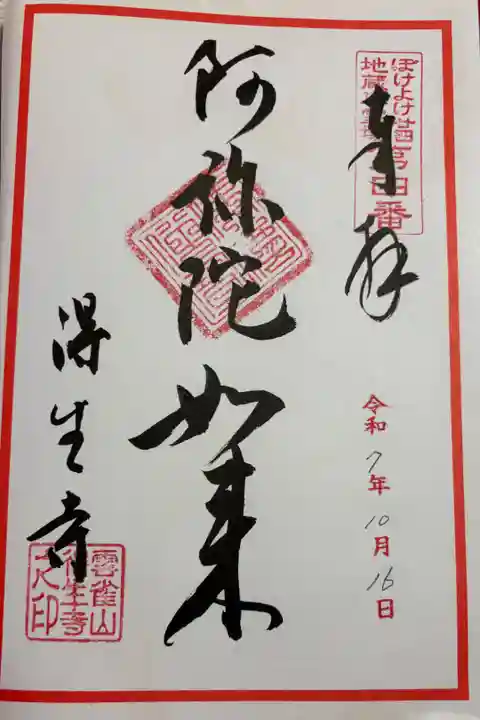 奉拝
ぼけよけ二十四
地蔵霊場第四番
令和7年10月16日
阿弥陀如来
得生寺
雲雀山
得生寺
之印